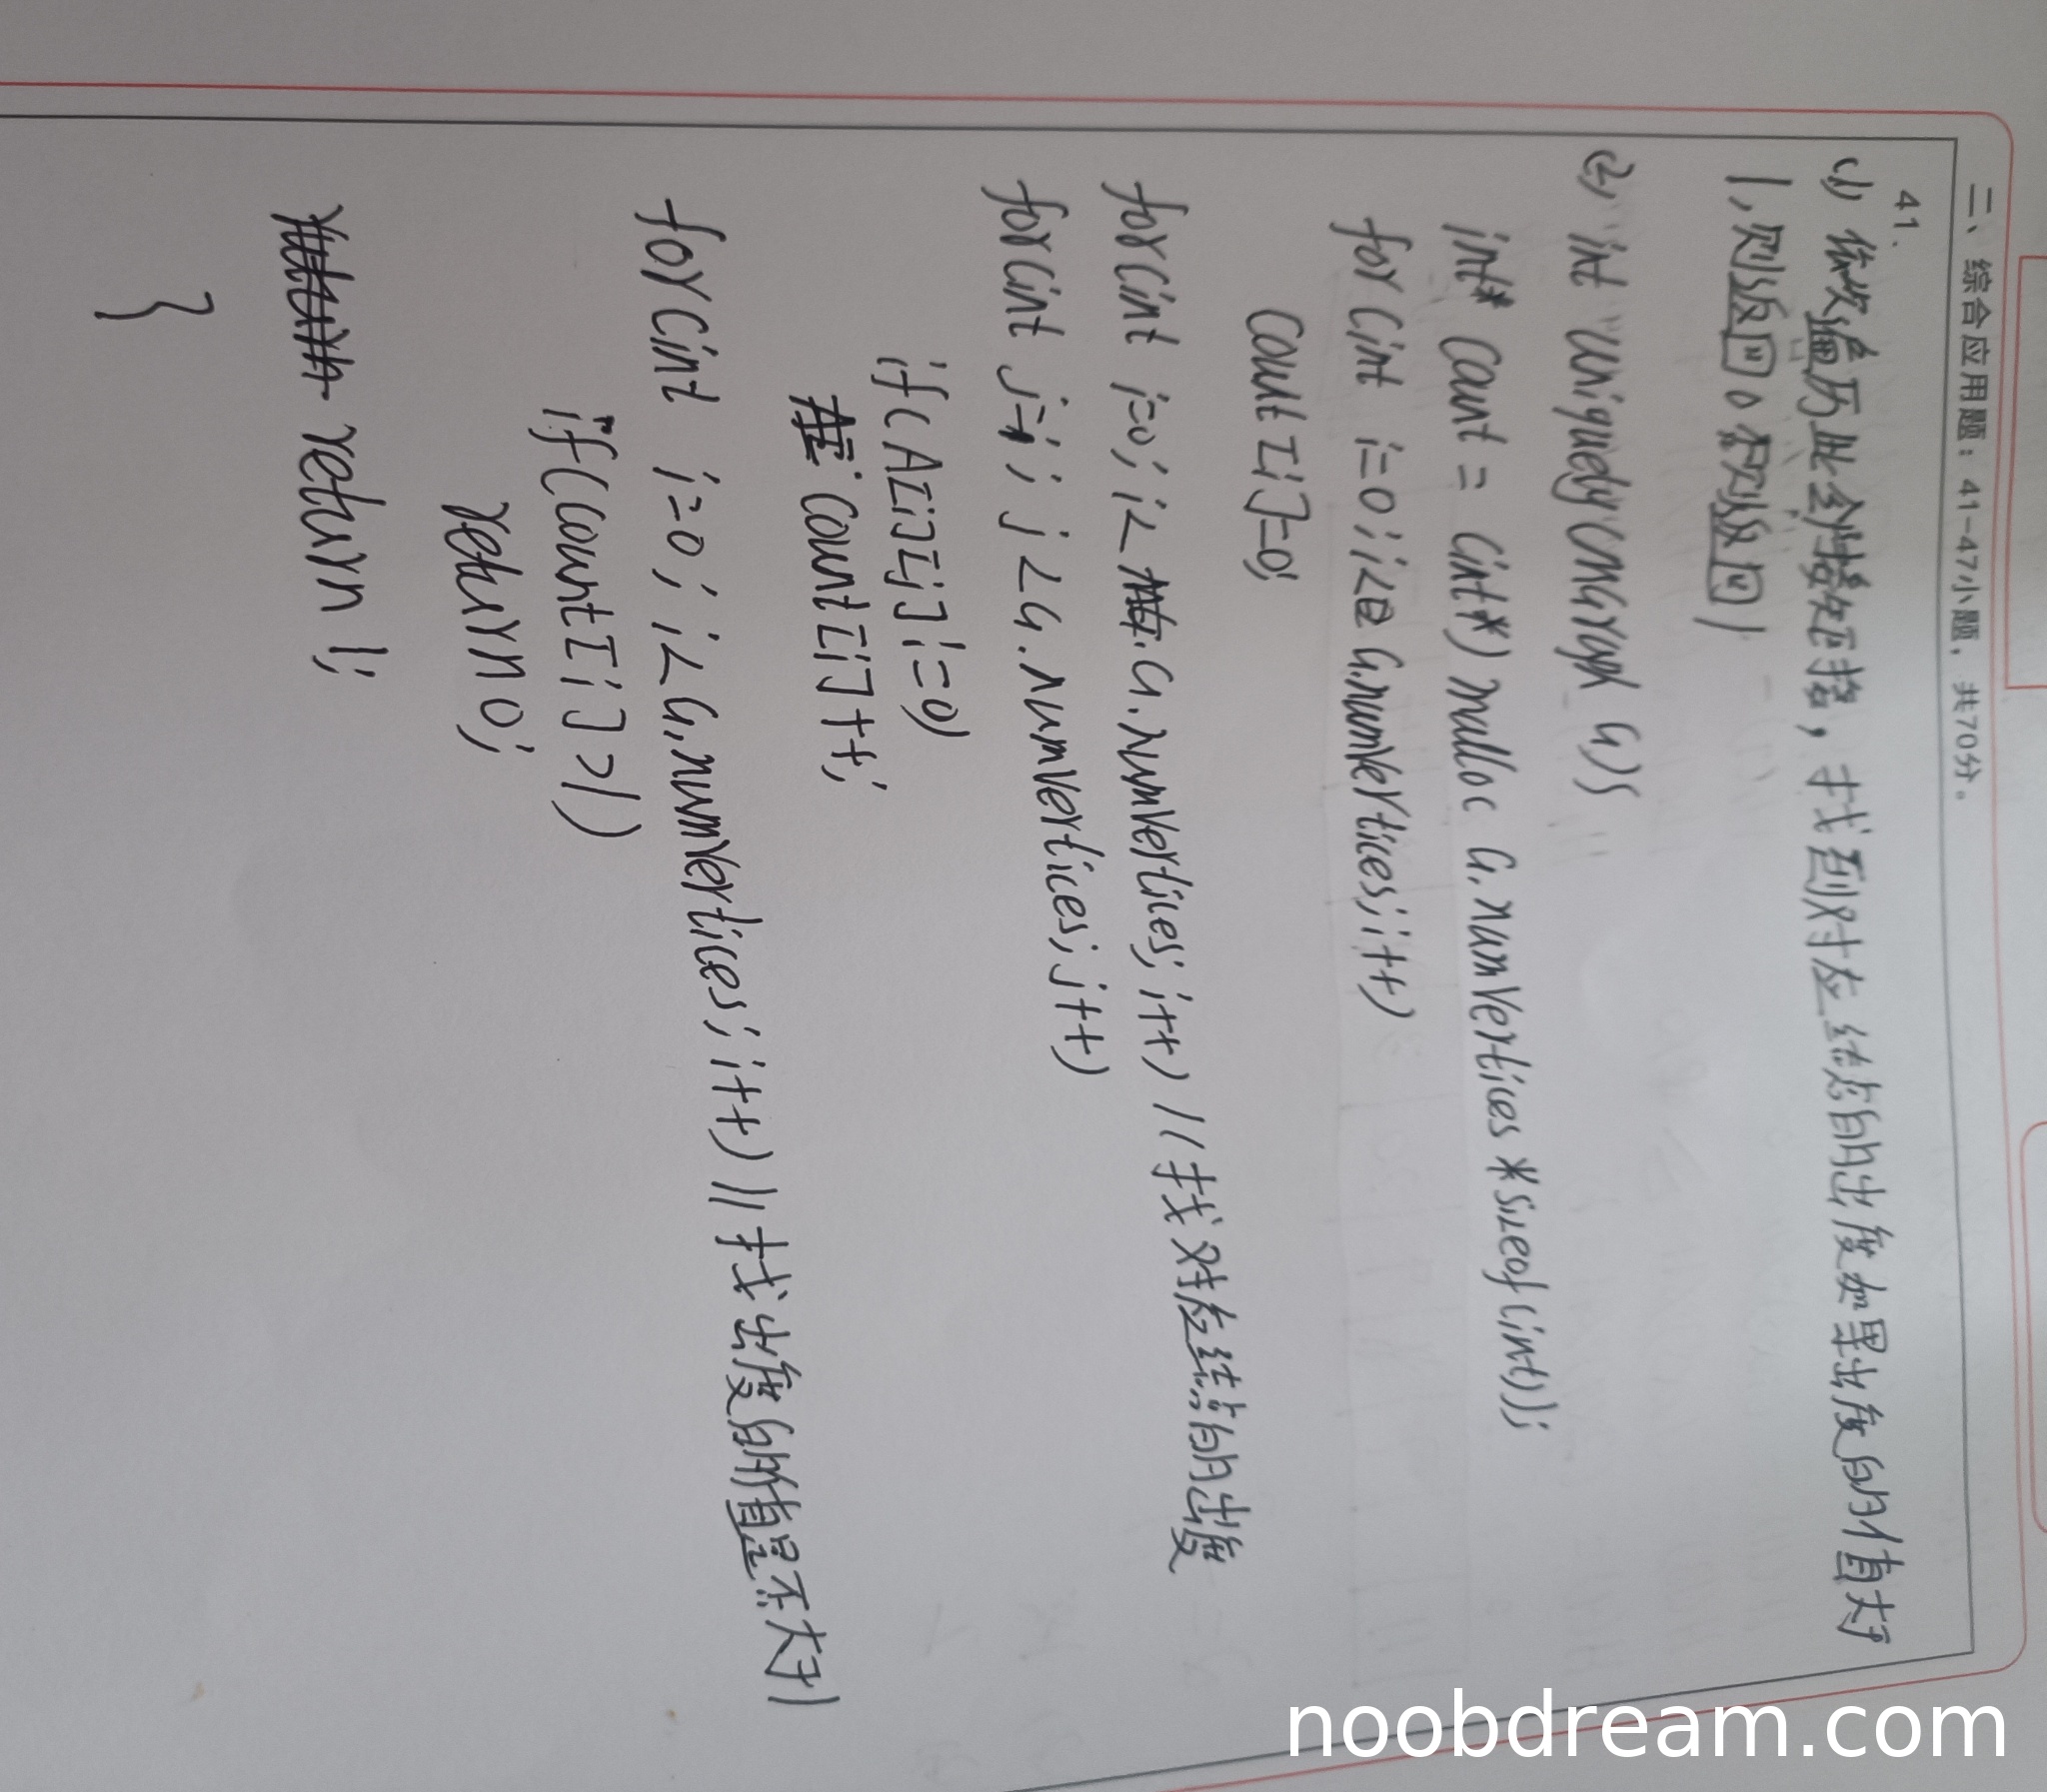 二、综合应用题：41-47小题，共70分。
41.
(1) 依次遍历此邻接矩阵，找到对应结点的出度如果出度的值大于
1，则返回0否则返回1
(2) int uniquely(MGraph G){
int* count = (int*) malloc G.numVertices *sizeof(int));
for(int i=0; i< G.numVertices; i++)
count[i]=0;
for(int i=0; i< G.numVertices; i++) //找对应结点的出度
for(int j=i; j<G.numVertices; j++)
if(A[i][j]!=0)
count[i]++;
for(int i=0; i<G.numVertices; i++) //找出度的值是不大于1
if(count[i]>1)
return 0;
return 1;
}
noobdream.com